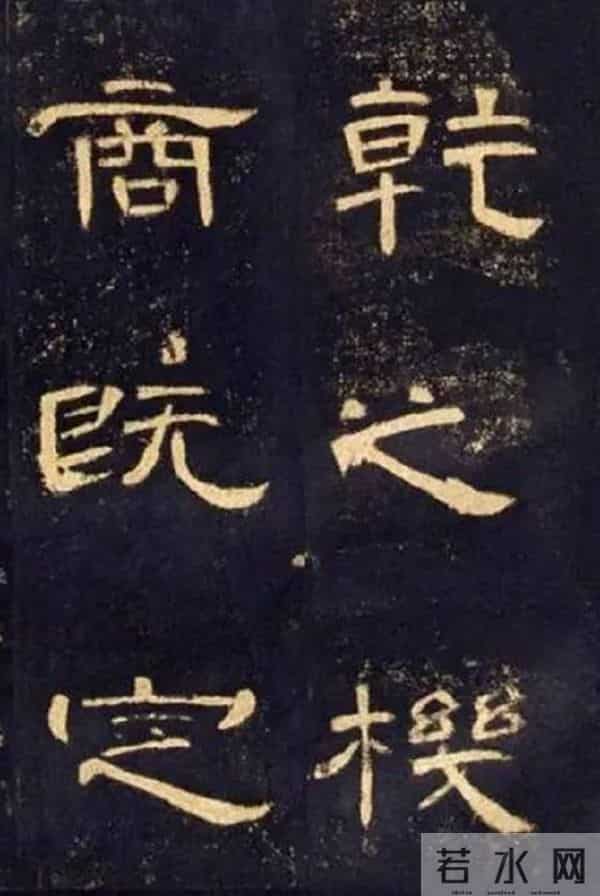 乾之機
商既定
若水网